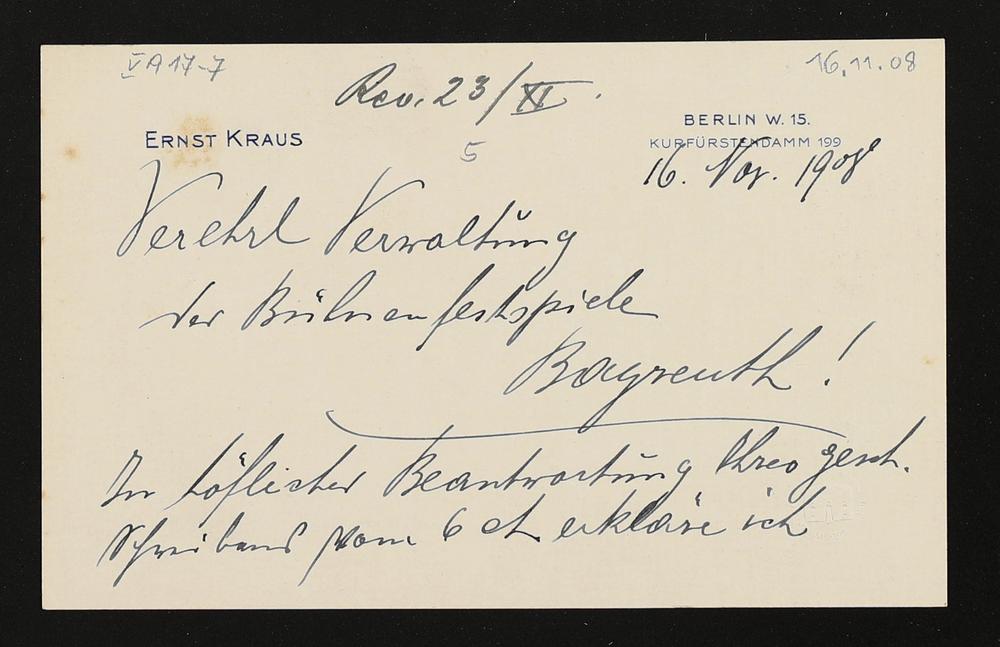 VA17-7
16.11.08
Rev. 23/XI.
ERNST KRAUS
BERLIN W. 15.
KURFÜRSTENDAMM 199
5
16. Nov. 1908
Verehrl Verwaltung
der Bühnenfestspiele
Bayreuth!
In höflicher Beantwortung Ihres gesch.
Schreibens vom 6 ct erkläre ich